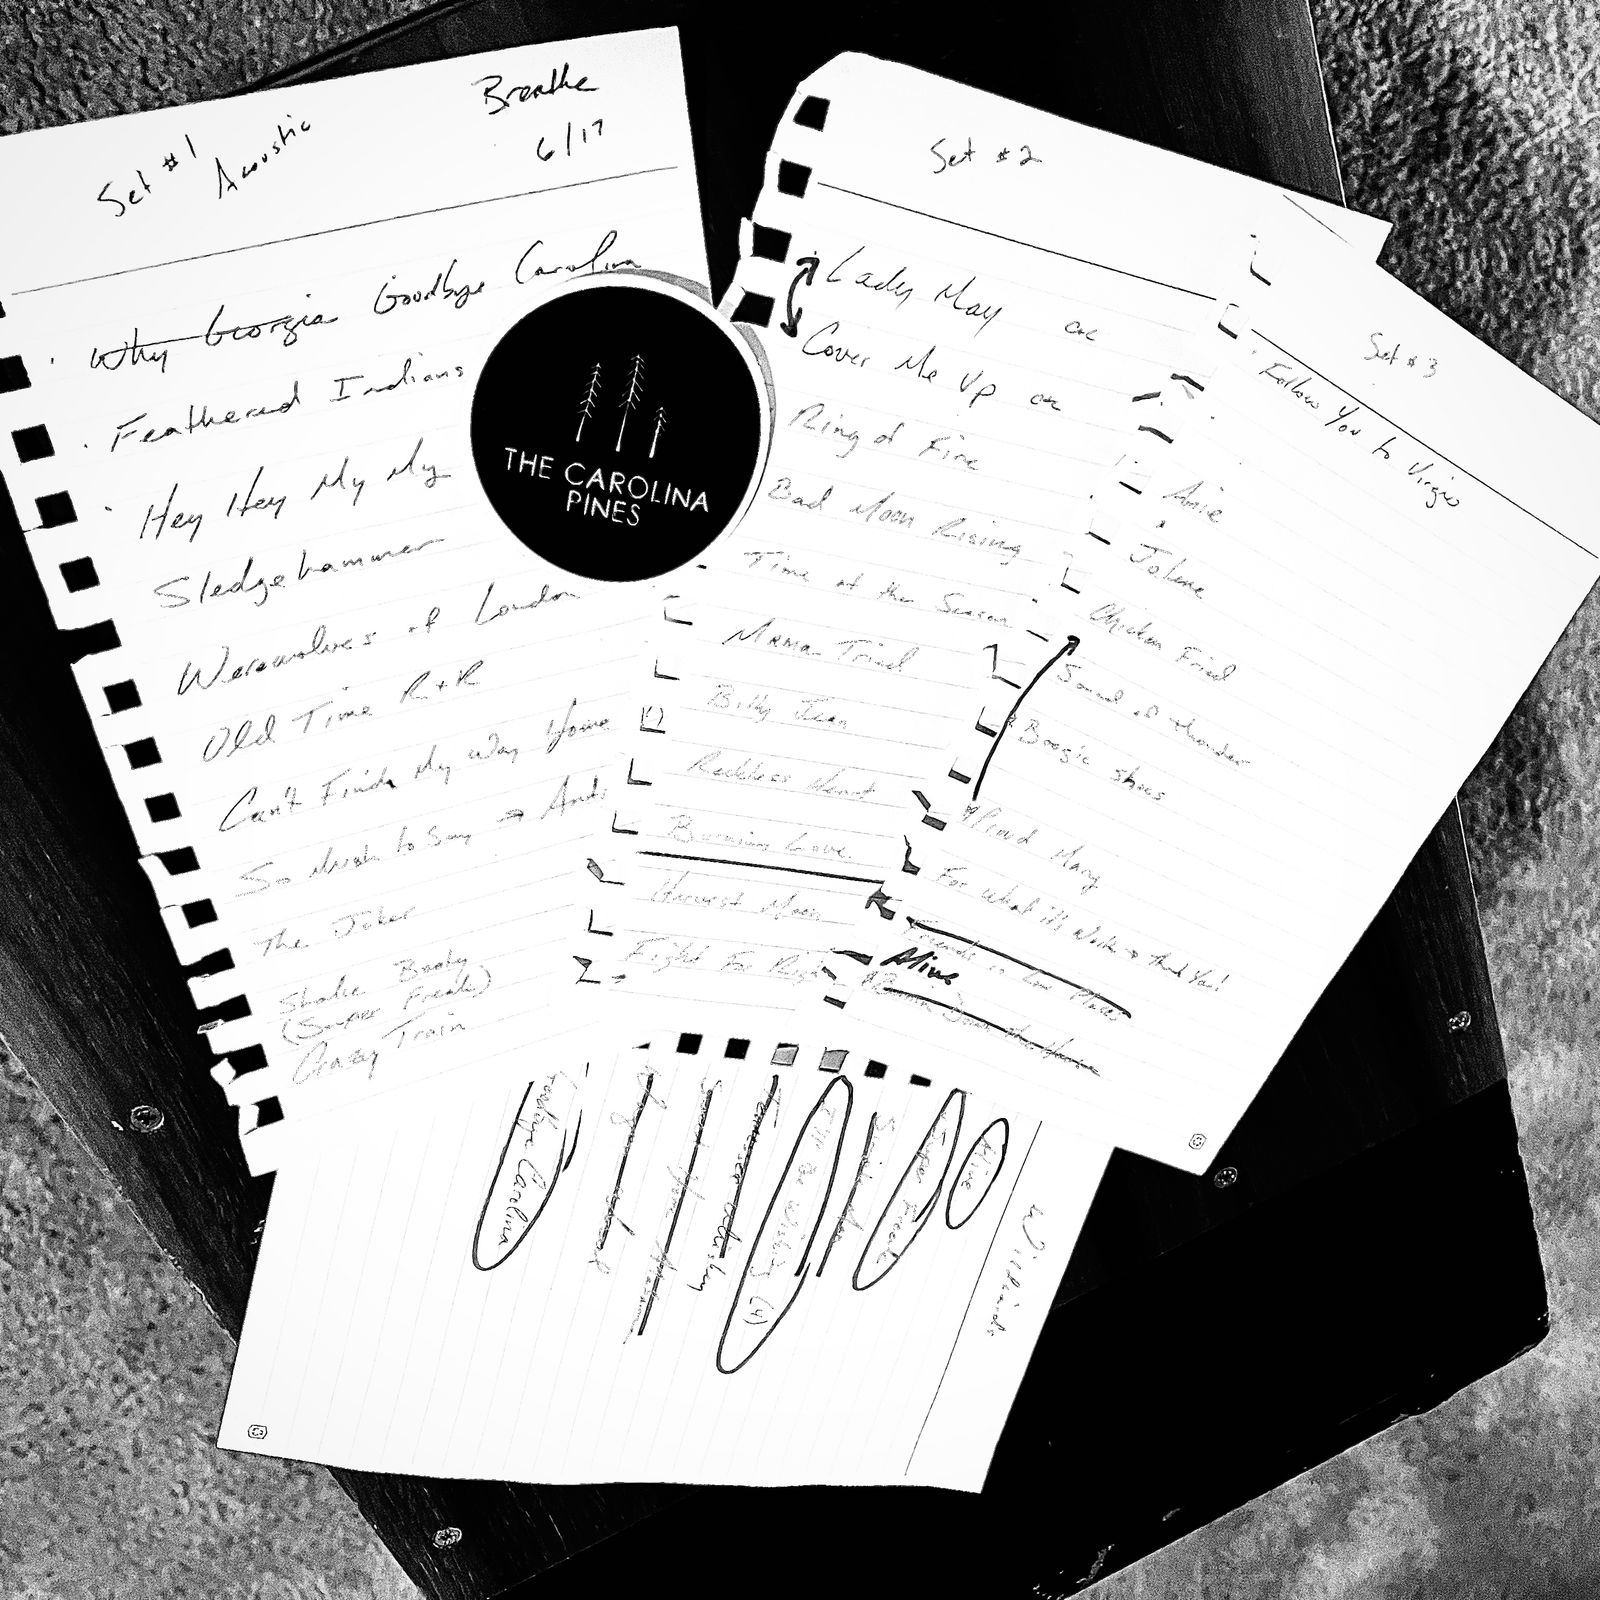 Set #1
Acoustic
Breathe
6/17
Why Georgia Goodbye Carolina
Feathered Indians
Hey Hey My My
Sledgehammer
Werewolves of London
Old Time R+R
Can't Find My Way Home
So Much to Say → Ants
The Joker
Shake Booty
(Super Freak)
Crazy Train
THE CAROLINA
PINES
Set #2
Lady May
Cover Me Up
Ring of Fire
Bad Moon Rising
Time of the Season
Mama Tried
Billy Jean
Reckless Heart
Burning Love
Harvest Moon
Fight For Right
Set #3
Follow You to Virgie
Amie
Jolene
Chicken Fried
Sound of thunder
Boogie shoes
Proud Mary
For what it's Worth → Thank You!
Friends in Low Places
Alive
Burnin Down the House
Wildcards
Alive
Super Freak
I'll Be Waiting (4)
Goodbye Carolina